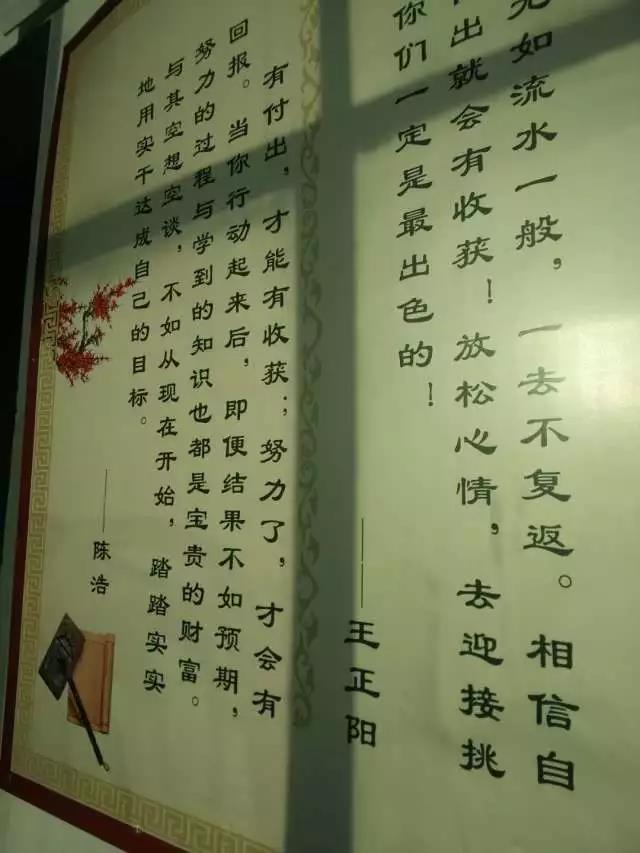 如流水一般，一去不复返。相信自
出就会有收获！放松心情，去迎接挑
你们一定是最出色的！
——王正阳
有付出，才能有收获；努力了，才会有
回报。当你行动起来后，即便结果不如预期，
努力的过程与学到的知识也都是宝贵的财富。
与其空想空谈，不如从现在开始，踏踏实实
地用实干达成自己的目标。
——陈浩